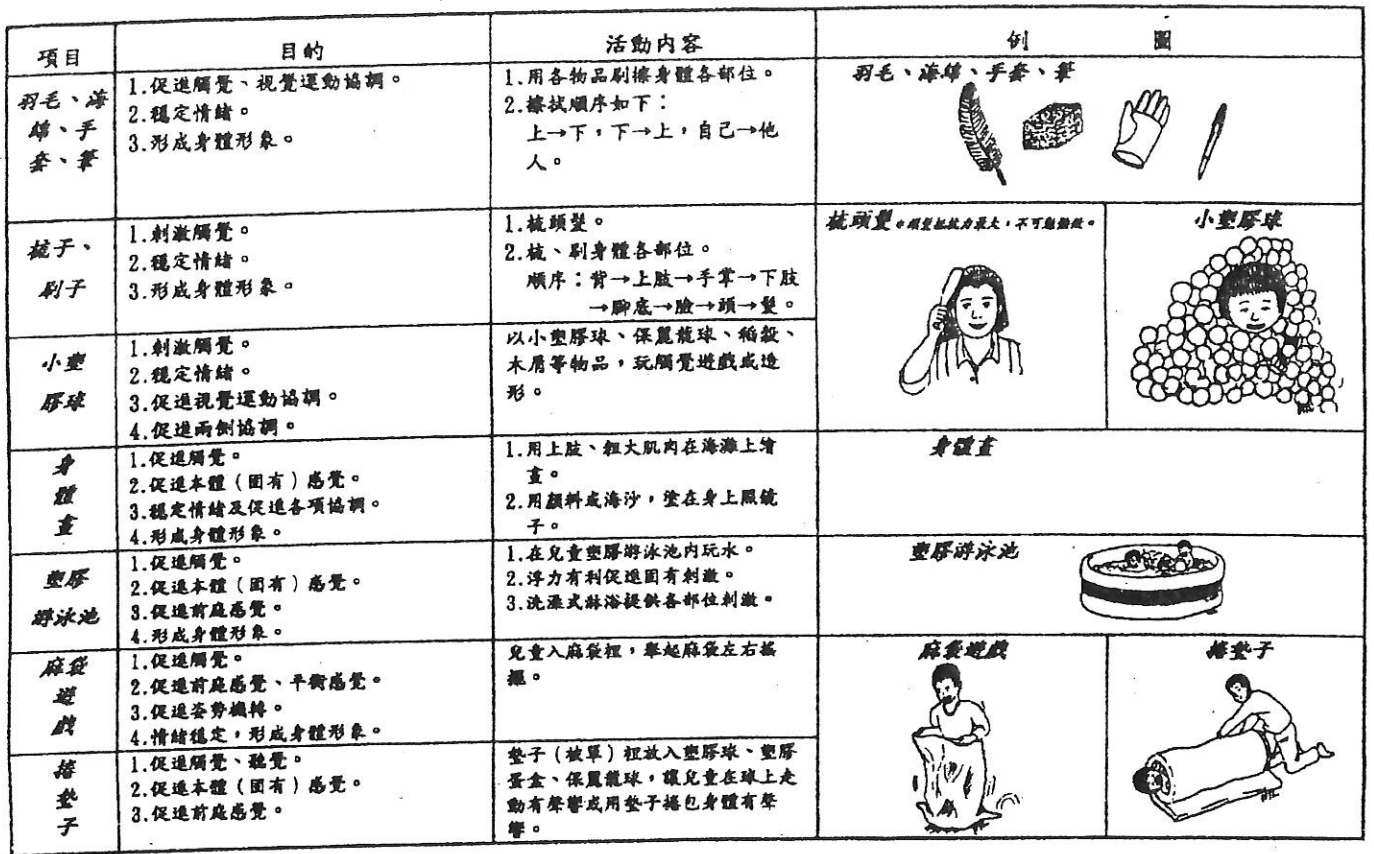 項目
目的
活動內容
例 圖
羽毛、海
綿、手
套、筆
1.促進觸覺、視覺運動協調。
2.穩定情緒。
3.形成身體形象。
1.用各物品刷擦身體各部位。
2.擦拭順序如下：
上→下，下→上，自己→他
人。
羽毛、海綿、手套、筆
梳子、
刷子
1.刺激觸覺。
2.穩定情緒。
3.形成身體形象。
1.梳頭髮。
2.梳、刷身體各部位。
順序：背→上肢→手掌→下肢
→腳底→臉→頭→髮。
梳頭髮
小塑膠球
小塑
膠球
1.刺激觸覺。
2.穩定情緒。
3.促進視覺運動協調。
4.促進兩側協調。
以小塑膠球、保麗龍球、稻穀、
木屑等物品，玩觸覺遊戲或造
形。
身
體
畫
1.促進觸覺。
2.促進本體（固有）感覺。
3.穩定情緒及促進各項協調。
4.形成身體形象。
1.用上肢、粗大肌肉在海灘上繪
畫。
2.用顏料或海沙，塗在身上照鏡
子。
身體畫
塑膠
游泳池
1.促進觸覺。
2.促進本體（固有）感覺。
3.促進前庭感覺。
4.形成身體形象。
1.在兒童塑膠游泳池內玩水。
2.浮力有利促進固有刺激。
3.洗澡式淋浴提供各部位刺激。
塑膠游泳池
麻袋
遊
戲
1.促進觸覺。
2.促進前庭感覺、平衡感覺。
3.促進姿勢機轉。
4.情緒穩定，形成身體形象。
兒童入麻袋裡，舉起麻袋左右搖
擺。
麻袋遊戲
捲墊子
捲
墊
子
1.促進觸覺、聽覺。
2.促進本體（固有）感覺。
3.促進前庭感覺。
墊子（被單）裡放入塑膠球、塑膠
蛋盒、保麗龍球，讓兒童在球上走
動有聲響或用墊子捲包身體有聲
響。